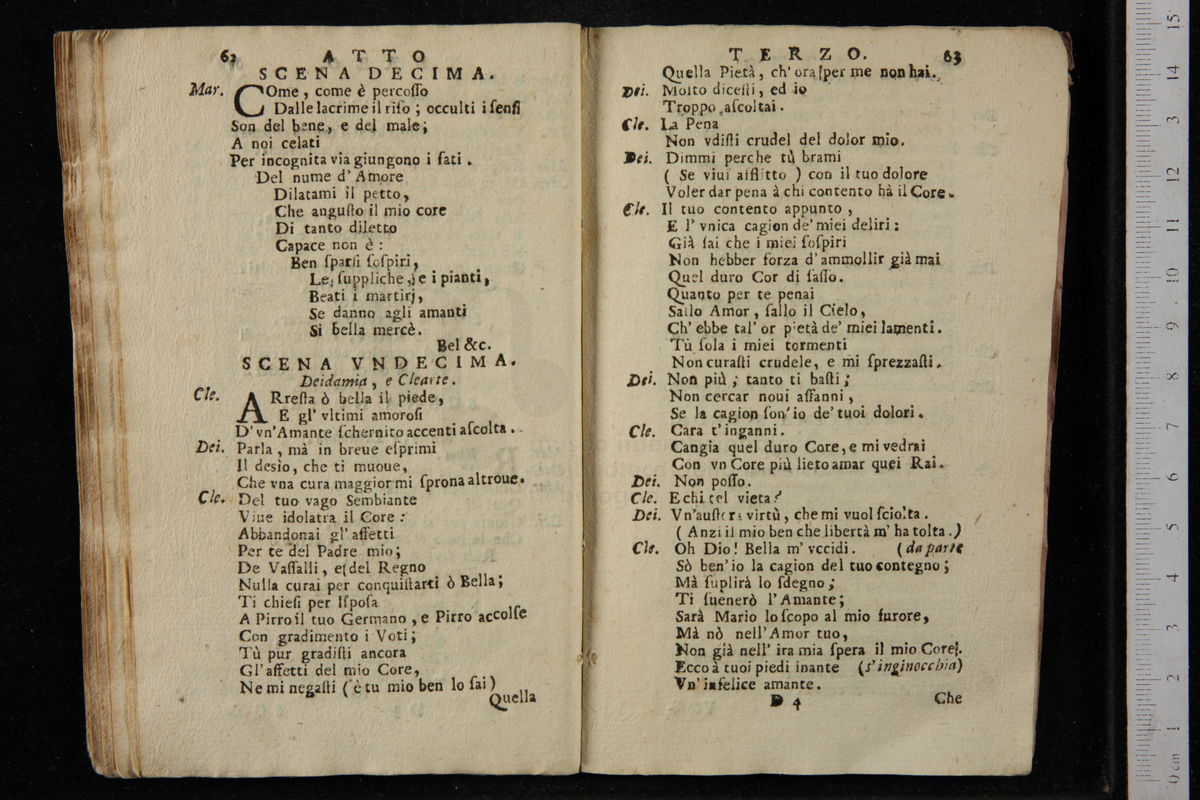 62 ATTO
SCENA DECIMA.
Mar. COme, come è percoſſo
Dalle lacrime il riſo; occulti i ſenſi
Son del bene, e del male;
A noi celati
Per incognita via giungono i fati.
Del nume d'Amore
Dilatami il petto,
Che anguſto il mio core
Di tanto diletto
Capace non è:
Ben ſparſi ſoſpiri,
Le, ſuppliche, e i pianti,
Beati i martirj,
Se danno agli amanti
Si bella mercè.
Bel &c.
SCENA VNDECIMA.
Deidamia, e Clearte.
Cle. ARreſta ò bella il piede,
E gl' vltimi amoroſi
D' vn' Amante ſchernito accenti aſcolta.
Dei. Parla, mà in breue eſprimi
Il desio, che ti muoue,
Che vna cura maggior mi ſprona altroue.
Cle. Del tuo vago Sembiante
Viue idolatra il Core:
Abbandonai gl' affetti
Per te del Padre mio;
De Vaſſalli, e del Regno
Nulla curai per conquiſtarti ò Bella;
Ti chieſi per Iſpoſa
A Pirro il tuo Germano, e Pirro accolſe
Con gradimento i Voti;
Tù pur gradiſti ancora
Gl' affetti del mio Core,
Ne mi negaſti (è tu mio ben lo ſai)
Quella
TERZO. 63
Quella Pietà, ch' ora ſper me non hai.
Dei. Molto diceſti, ed io
Troppo aſcoltai.
Cle. La Pena
Non vdiſti crudel del dolor mio.
Dei. Dimmi perche tù brami
(Se viui afflitto) con il tuo dolore
Voler dar pena à chi contento hà il Core.
Cle. Il tuo contento appunto,
E l' vnica cagion de' miei deliri:
Già ſai che i miei ſoſpiri
Non hebber forza d' ammollir già mai
Quel duro Cor di ſaſſo.
Quanto per te penai
Sallo Amor, ſallo il Cielo,
Ch' ebbe tal' or pietà de' miei lamenti.
Tù ſola i miei tormenti
Non curaſti crudele, e mi ſprezzaſti.
Dei. Non più; tanto ti baſti;
Non cercar noui affanni,
Se la cagion ſon' io de' tuoi dolori.
Cle. Cara t' inganni.
Cangia quel duro Core, e mi vedrai
Con vn Core più lieto amar quei Rai.
Dei. Non poſſo.
Cle. E chi tel vieta?
Dei. Vn' auſtera virtù, che mi vuol ſciolta.
(Anzi il mio ben che libertà m' ha tolta.)
Cle. Oh Dio! Bella m' vccidi. (da parte
Sò ben' io la cagion del tuo contegno;
Mà ſuplirà lo ſdegno;
Ti ſuenerò l' Amante;
Sarà Mario lo ſcopo al mio furore,
Mà nò nell' Amor tuo,
Non già nell' ira mia ſpera il mio Core.
Ecco à tuoi piedi inante (s' inginocchia)
Vn' infelice amante.
D 4 Che
15
14
13
12
11
10
9
8
7
6
5
4
3
2
1
0 cm